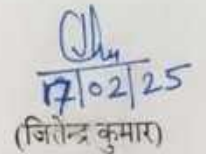 17/02/25
(जितेन्द्र कुमार)